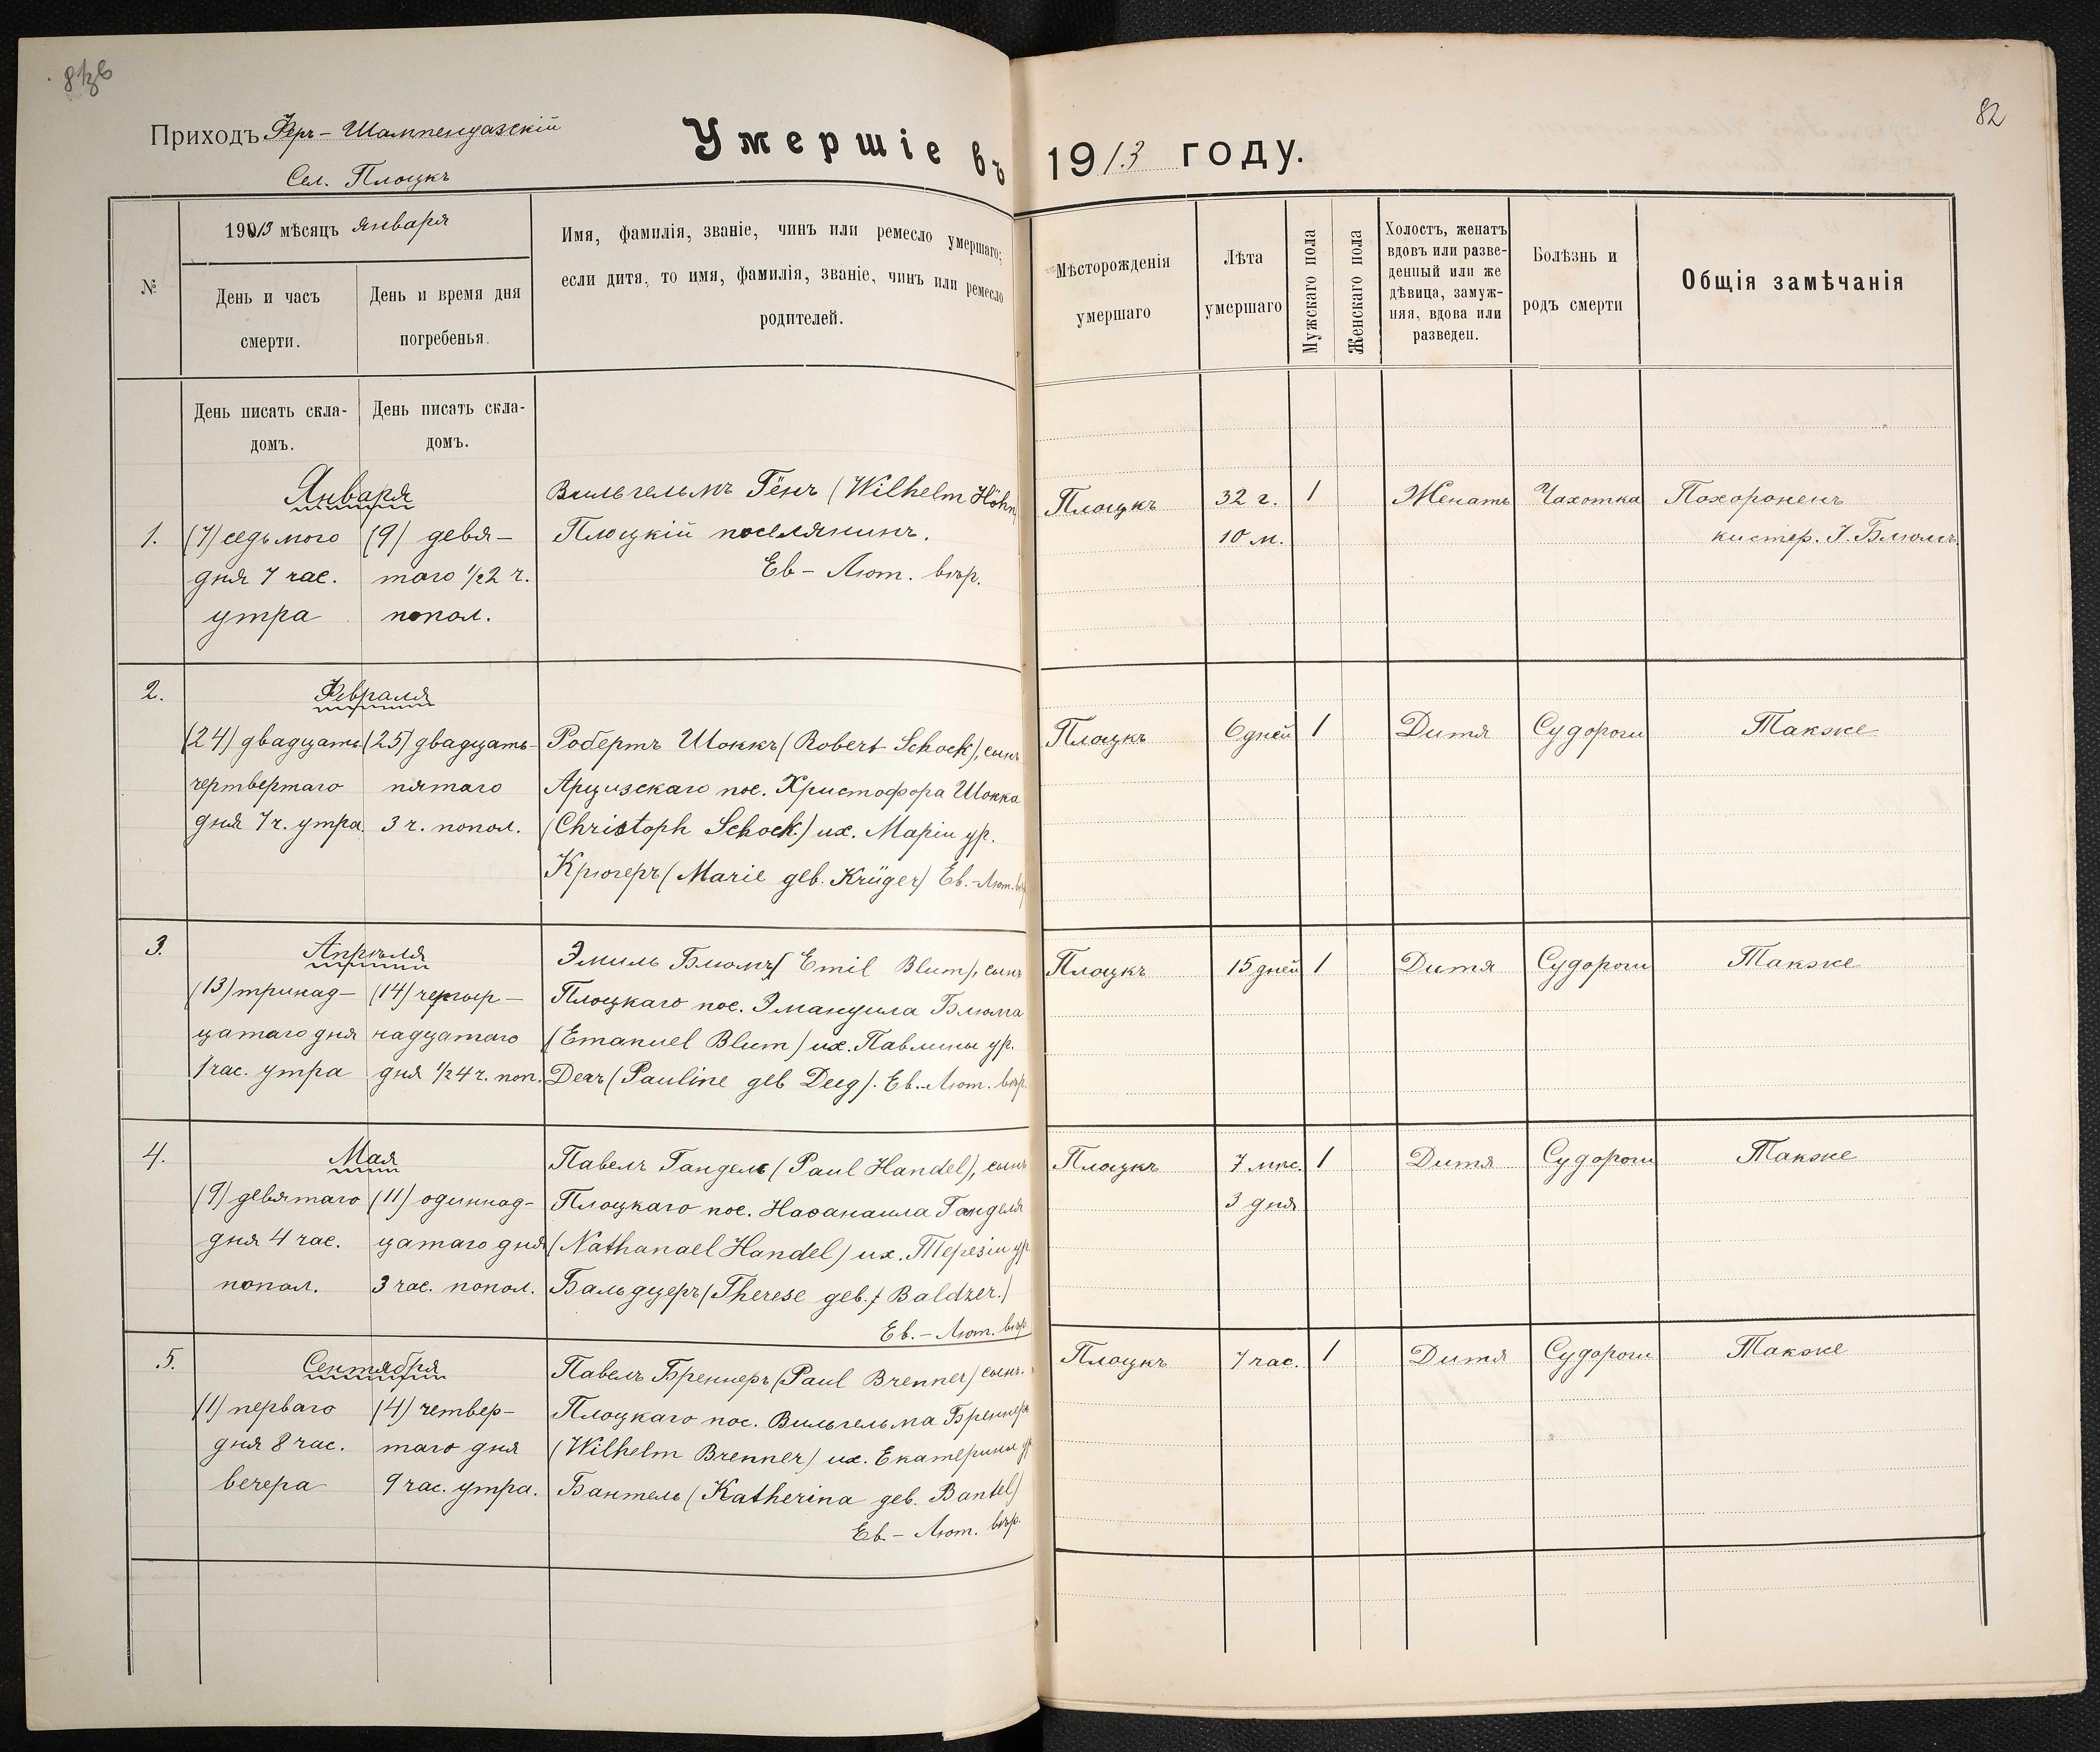 82
Приходъ Фер-Шампенуазскій
Сел. Плоцкъ
Умершіе въ 1913 году.
№
1913 мѣсяцъ Января
День и часъ смерти.
День и время дня погребенья.
Имя, фамилія, званіе, чинъ или ремесло умершаго;
если дитя, то имя, фамилія, званіе, чинъ или ремесло
родителей.
Мѣсторожденія умершаго
Лѣта умершаго
Мужскаго пола
Женскаго пола
Холостъ, женатъ
вдовъ или разве-
денный или же
дѣвица, замуж-
няя, вдова или
разведен.
Болѣзнь и родъ смерти
Общія замѣчанія
День писать скла-
домъ.
День писать скла-
домъ.
1.
Января
(7) седьмого
дня 7 час.
утра
(9) девя-
таго 1/2 2 ч.
попол.
Вильгельмъ Гёнъ (Wilhelm Höhn)
Плоцкій поселянинъ.
Ев-Лют. вѣр.
Плоцкъ
32 г.
10 м.
1
Женатъ
Чахотка
Похороненъ
кистер. І. Блюмъ.
2.
Февраля
(24) двадцать
чертвертаго
дня 7 ч. утра
(25) двадцать-
пятаго
3 ч. попол.
Робертъ Шоккъ (Robert Schock), сынъ
Арцизскаго пос. Христофора Шокка
(Christoph Schock) и ж. Маріи ур.
Крюгеръ (Marie geb. Krüger) Ев.-Лют. вѣр
Плоцкъ
6 дней
1
Дитя
Судороги
Также
3.
Апрѣля
(13) тринад-
цатаго дня
1 час. утра
(14) четыр-
надцатаго
дня 1/2 4 ч. поп.
Эмиль Блюмъ (Emil Blum), сынъ
Плоцкаго пос. Эмануила Блюма
(Emanuel Blum) и ж. Павлины ур.
Дегъ (Pauline geb Deeg). Ев.-Лют. вѣр.
Плоцкъ
15 дней
1
Дитя
Судороги
Также
4.
Мая
(9) девятаго
дня 4 час.
попол.
(11) одиннад-
цатаго дня
3 час. попол.
Павелъ Гандель (Paul Handel), сынъ
Плоцкаго пос. Наѳанаила Ганделя
(Nathanael Handel) и ж. Терезіи ур
Бальдцеръ (Therese geb. Baldzer.)
Ев.-Лют. вѣр.
Плоцкъ
7 мѣс.
3 дня
1
Дитя
Судороги
Также
5.
Сентября
(1) перваго
дня 8 час.
вечера
(4) четвер-
таго дня
9 час. утра.
Павелъ Бреннеръ (Paul Brenner) сынъ.
Плоцкаго пос. Вильгельма Бреннера
(Wilhelm Brenner) и ж. Екатерины ур
Бантель (Katherina geb. Bantel)
Ев.-Лют. вѣр.
Плоцкъ
7 час.
1
Дитя
Судороги
Также